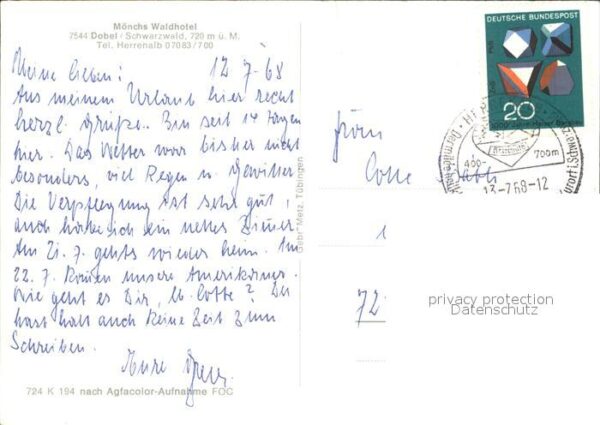 Mönchs Waldhotel
7544 Dobel / Schwarzwald, 720 m ü. M.
Tel. Herrenalb 07083/700
Meine Lieben! 12.7.68
Aus meinem Urlaub hier recht
herzl. Grüße. Bin seit 14 Tagen
hier. Das Wetter war bisher nicht
besonders, viel Regen u. Gewitter.
Die Verpflegung ist sehr gut,
auch habe ich ein nettes Zimmer.
Am 21.7. gehts wieder heim. Am
22.7. kommen unsere Amerikaner.
Wie geht es Dir, lb. Lotte? Du
hast halt auch keine Zeit zum
Schreiben.
Eure
724 K 194 nach Agfacolor-Aufnahme FOC
Gebr. Metz, Tübingen
DEUTSCHE BUNDESPOST
20
400-
700m
13.-7.68-12
Lotte
1
72
privacy protection
Datenschutz